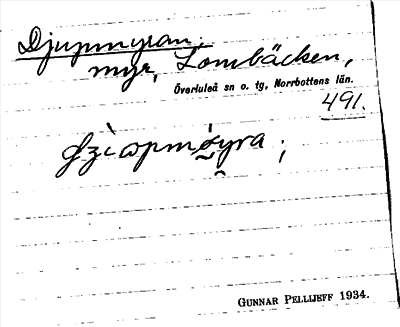 Djupmyran:
myr, Lombäcken,
Överluleå sn o. tg, Norrbottens län.
491.
GUNNAR PELLIJEFF 1934.